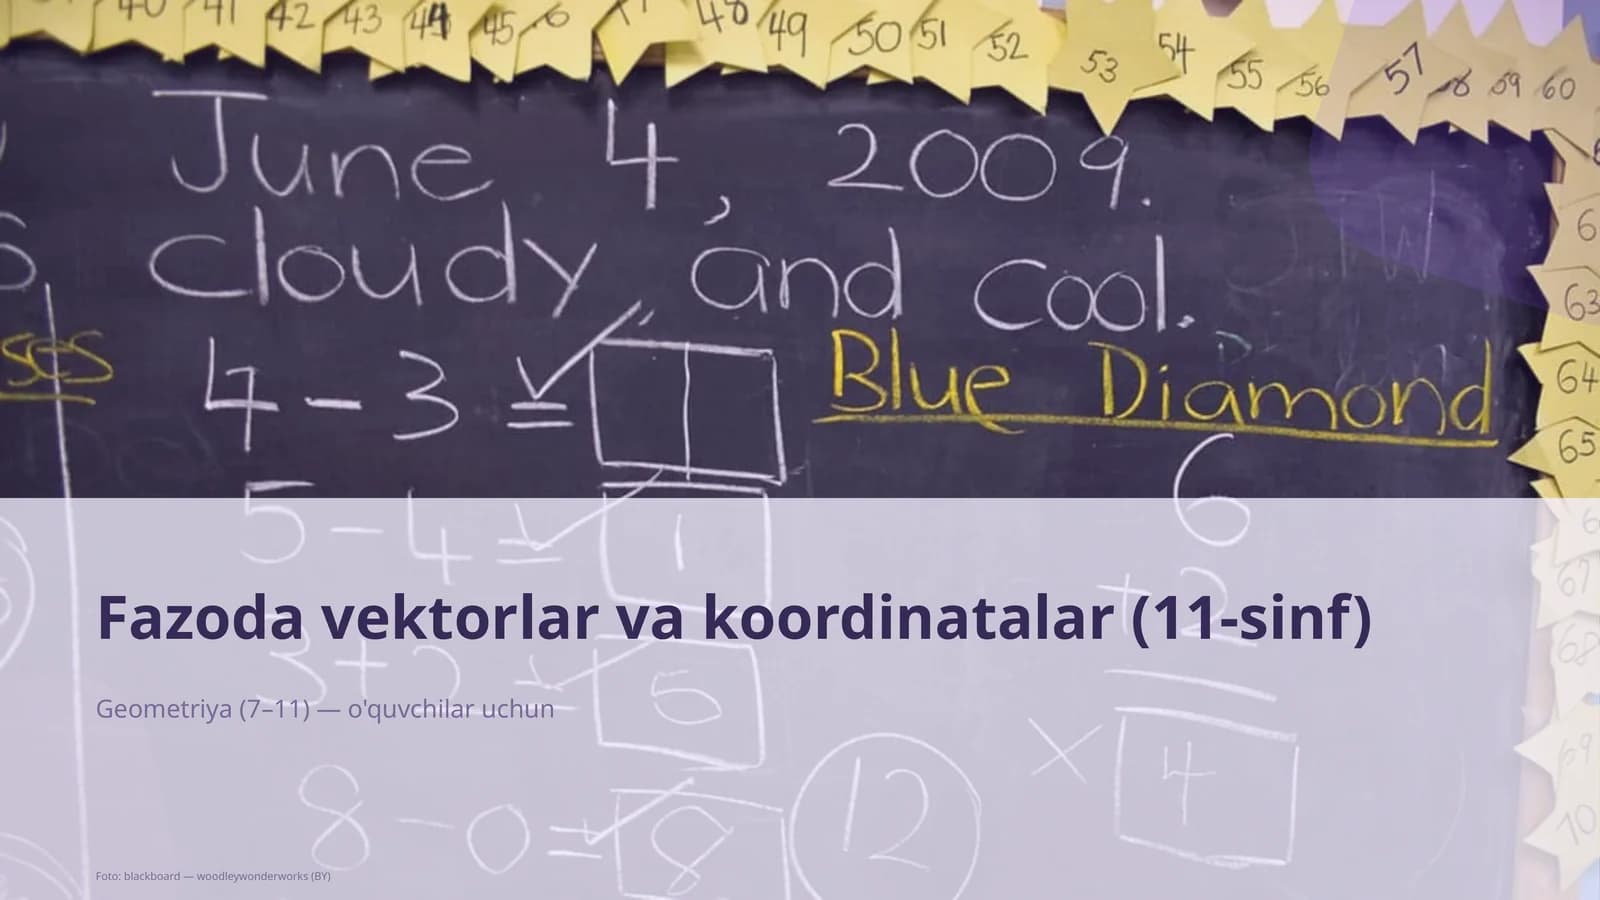 40 41 42 43 44 45 48 49 50 51 52 53 54 55 56 57 58 59 60
June 4, 2009.
Cloudy and cool.
63
4 - 3 =
Blue Diamond
64
65
5 - 4 = 1
6
+ 2
67
Fazoda vektorlar va koordinatalar (11-sinf)
68
5
Geometriya (7–11) — o'quvchilar uchun
69
× 4
12
8 - 0 = 8
70
Foto: blackboard — woodleywonderworks (BY)